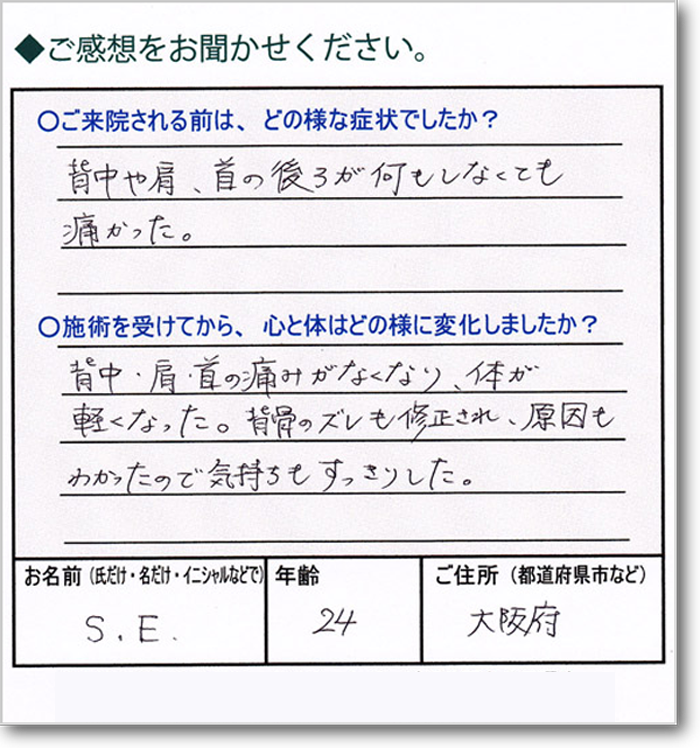 ◆ご感想をお聞かせください。
○ご来院される前は、どの様な症状でしたか？
背中や肩、首の後ろが何もしなくても
痛かった。
○施術を受けてから、心と体はどの様に変化しましたか？
背中・肩・首の痛みがなくなり、体が
軽くなった。背骨のズレも修正され、原因も
わかったので気持ちもすっきりした。
お名前（氏だけ・名だけ・イニシャルなどで）
年齢
ご住所（都道府県市など）
S.E.
24
大阪府